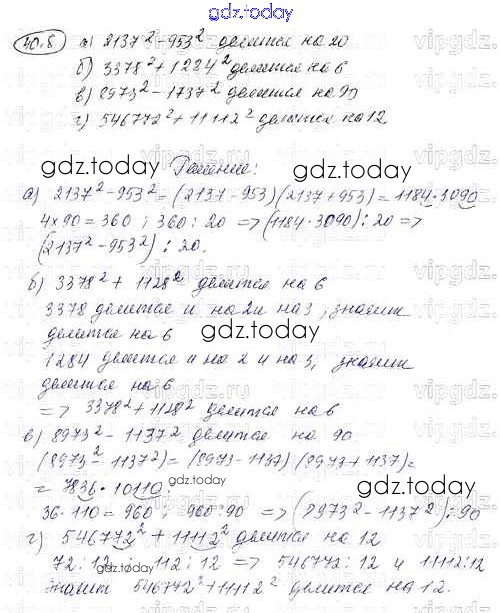 gdz.today
40.8 а) 2137² - 953² делится на 20
б) 3378² + 1284² делится на 6
в) 8973² - 1737² делится на 90
г) 546772² + 11112² делится на 12
gdz.today
Решение:
gdz.today
а) 2137² - 953² = (2137 - 953)(2137 + 953) = 1184 · 3090
4 × 90 = 360 ; 360 : 20 => (1184 · 3090) : 20 =>
(2137² - 953²) : 20.
б) 3378² + 1128² делится на 6
3378 делится и на 2 и на 3, значит
делится на 6
gdz.today
1284 делится и на 2 и на 3, значит
делится на 6
=> 3378² + 1128² делится на 6
gdz.today
в) 8973² - 1137² делится на 90
(8973² - 1137²) = (8973 - 1137)(8973 + 1137) =
= 7836 · 10110 :
gdz.today
36 · 110 = 960 ; 960 : 90 => (8973² - 1137²) : 90
г) 546772² + 11112² делится на 12
72 : 12 ; 112 : 12 => 546772 : 12 и 11112 : 12
значит 546772² + 11112² делится на 12.
gdz.today